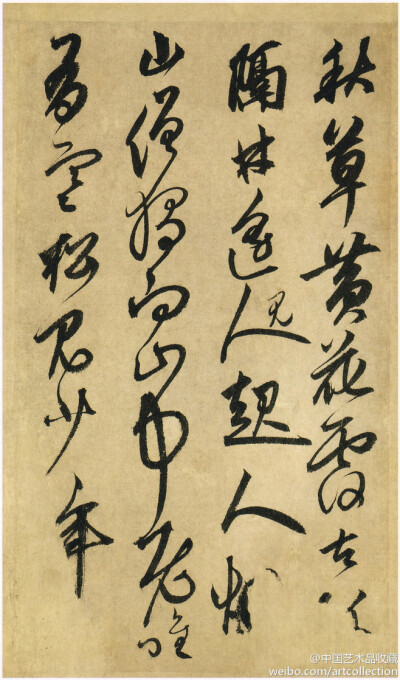 秋草黄花覆古阡
隔林遥人见起人烟
山僧独向山中老唯
有寒松见少年
@中国艺术品收藏
weibo.com/artcollection